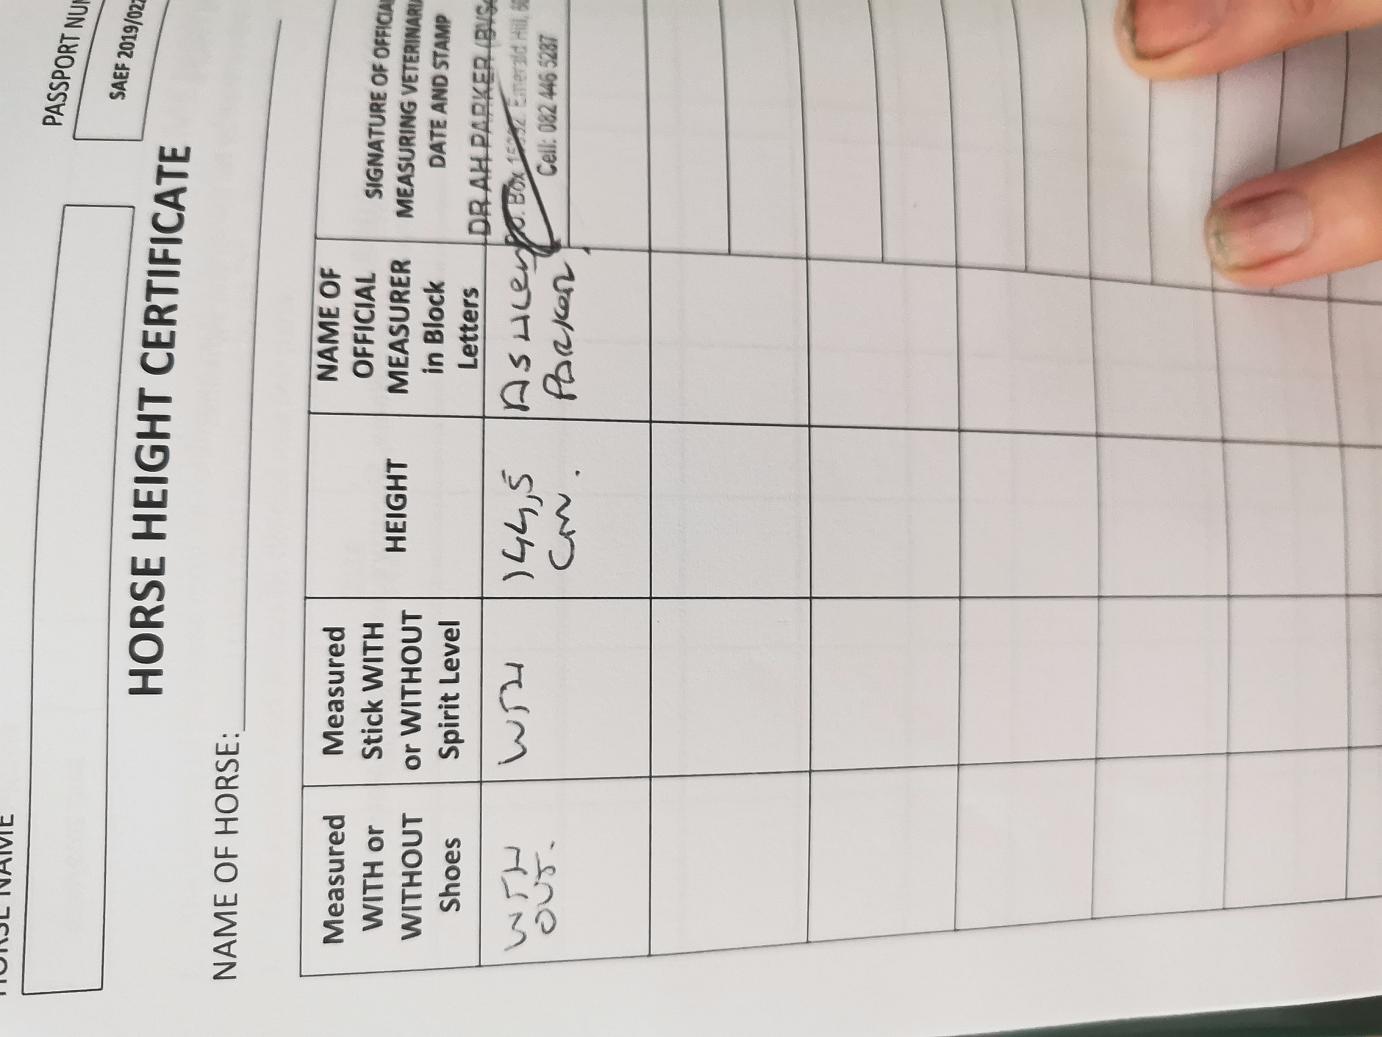 PASSPORT
SAEF 2019/02
HORSE NAME
HORSE HEIGHT CERTIFICATE
NAME OF HORSE:
Measured
WITH or
WITHOUT
Shoes
Measured
Stick WITH
or WITHOUT
Spirit Level
HEIGHT
NAME OF
OFFICIAL
MEASURER
in Block
Letters
SIGNATURE OF OFFICIAL
MEASURING
DATE AND STAMP
WITH
OUT.
WITH
144,5
cm.
ASHLEY
PARKER
DR AH PARKER (BVSc
P.O. Box Emerald Hill,
Cell: 082 446 5287